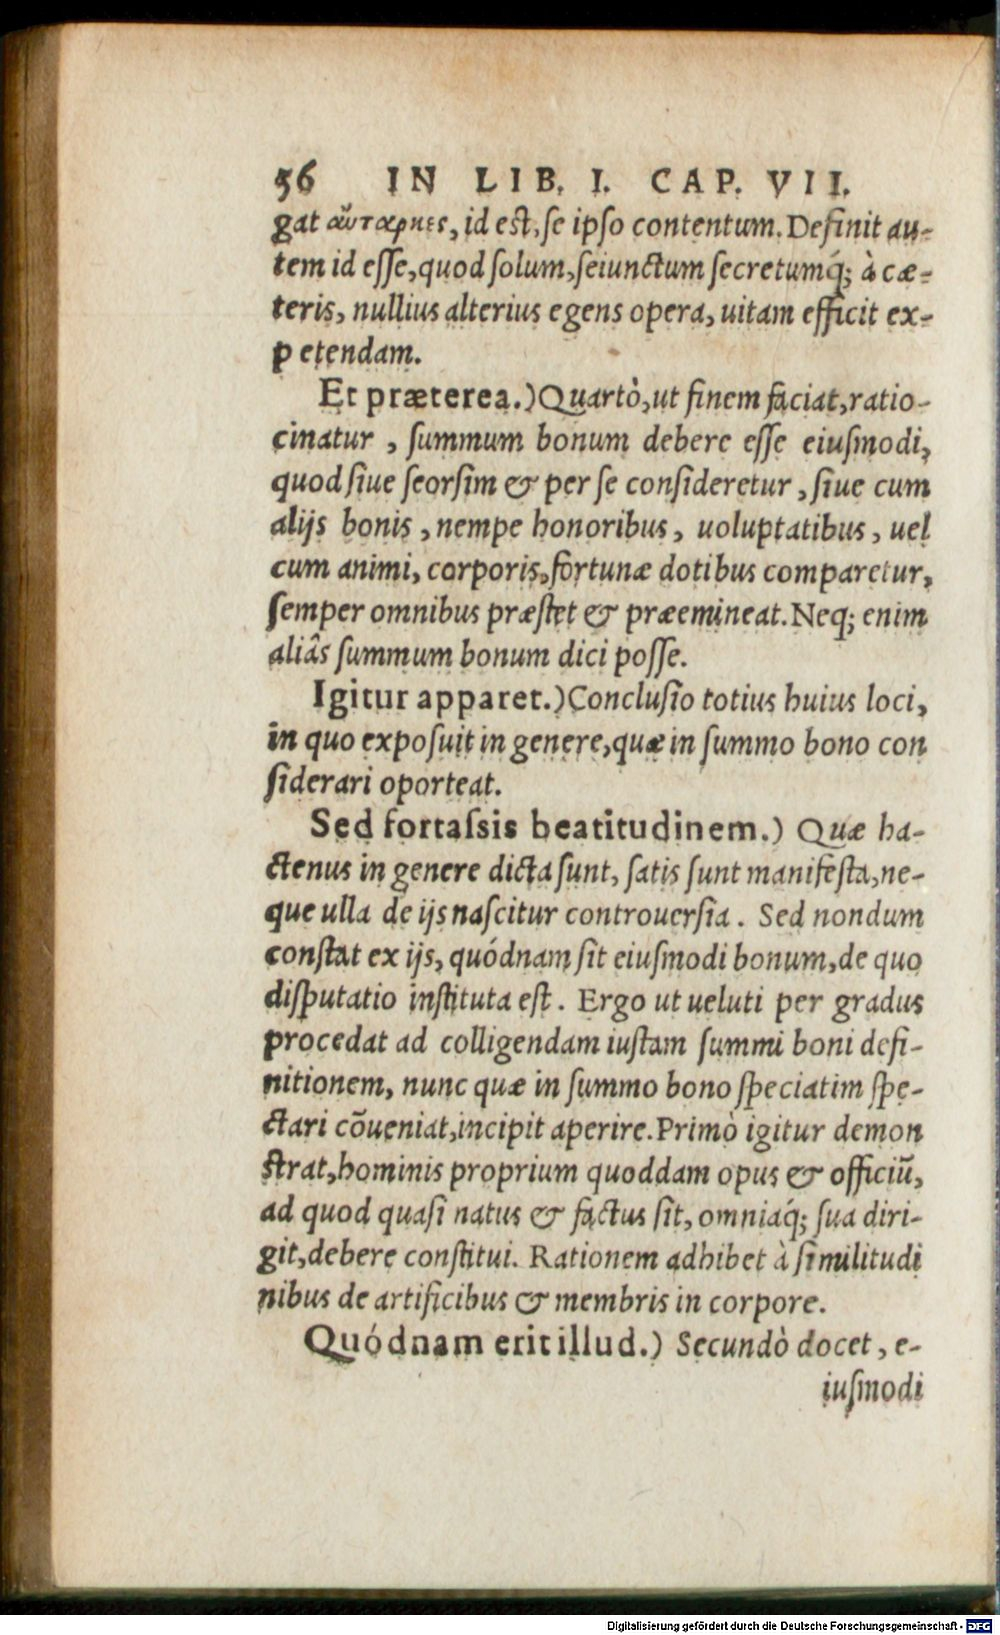 56 IN LIB. I. CAP. VII.
gat αὔταρκες, id est, se ipso contentum. Definit au-
tem id esse, quod solum, seiunctum secretumq́; à cæ-
teris, nullius alterius egens opera, uitam efficit ex-
petendam.
Et præterea.) Quartò, ut finem faciat, ratio-
cinatur, summum bonum debere esse eiusmodi,
quod siue seorsim & per se consideretur, siue cum
alijs bonis, nempe honoribus, uoluptatibus, uel
cum animi, corporis, fortunæ dotibus comparetur,
semper omnibus præstet & præemineat. Neq; enim
aliâs summum bonum dici posse.
Igitur apparet.) Conclusio totius huius loci,
in quo exposuit in genere, quæ in summo bono con
siderari oporteat.
Sed fortaſsis beatitudinem.) Quæ ha-
ctenus in genere dicta sunt, satis sunt manifesta, ne-
que ulla de ijs nascitur controuersia. Sed nondum
constat ex ijs, quódnam sit eiusmodi bonum, de quo
disputatio instituta est. Ergo ut ueluti per gradus
procedat ad colligendam iustam summi boni defi-
nitionem, nunc quæ in summo bono speciatim spe-
ctari cōueniat, incipit aperire. Primò igitur demon
strat, hominis proprium quoddam opus & officiū,
ad quod quasi natus & factus sit, omniaq́; sua diri-
git, debere constitui. Rationem adhibet à similitudi
nibus de artificibus & membris in corpore.
Quódnam erit illud.) Secundò docet, e-
iusmodi
Digitalisierung gefördert durch die Deutsche Forschungsgemeinschaft - DFG